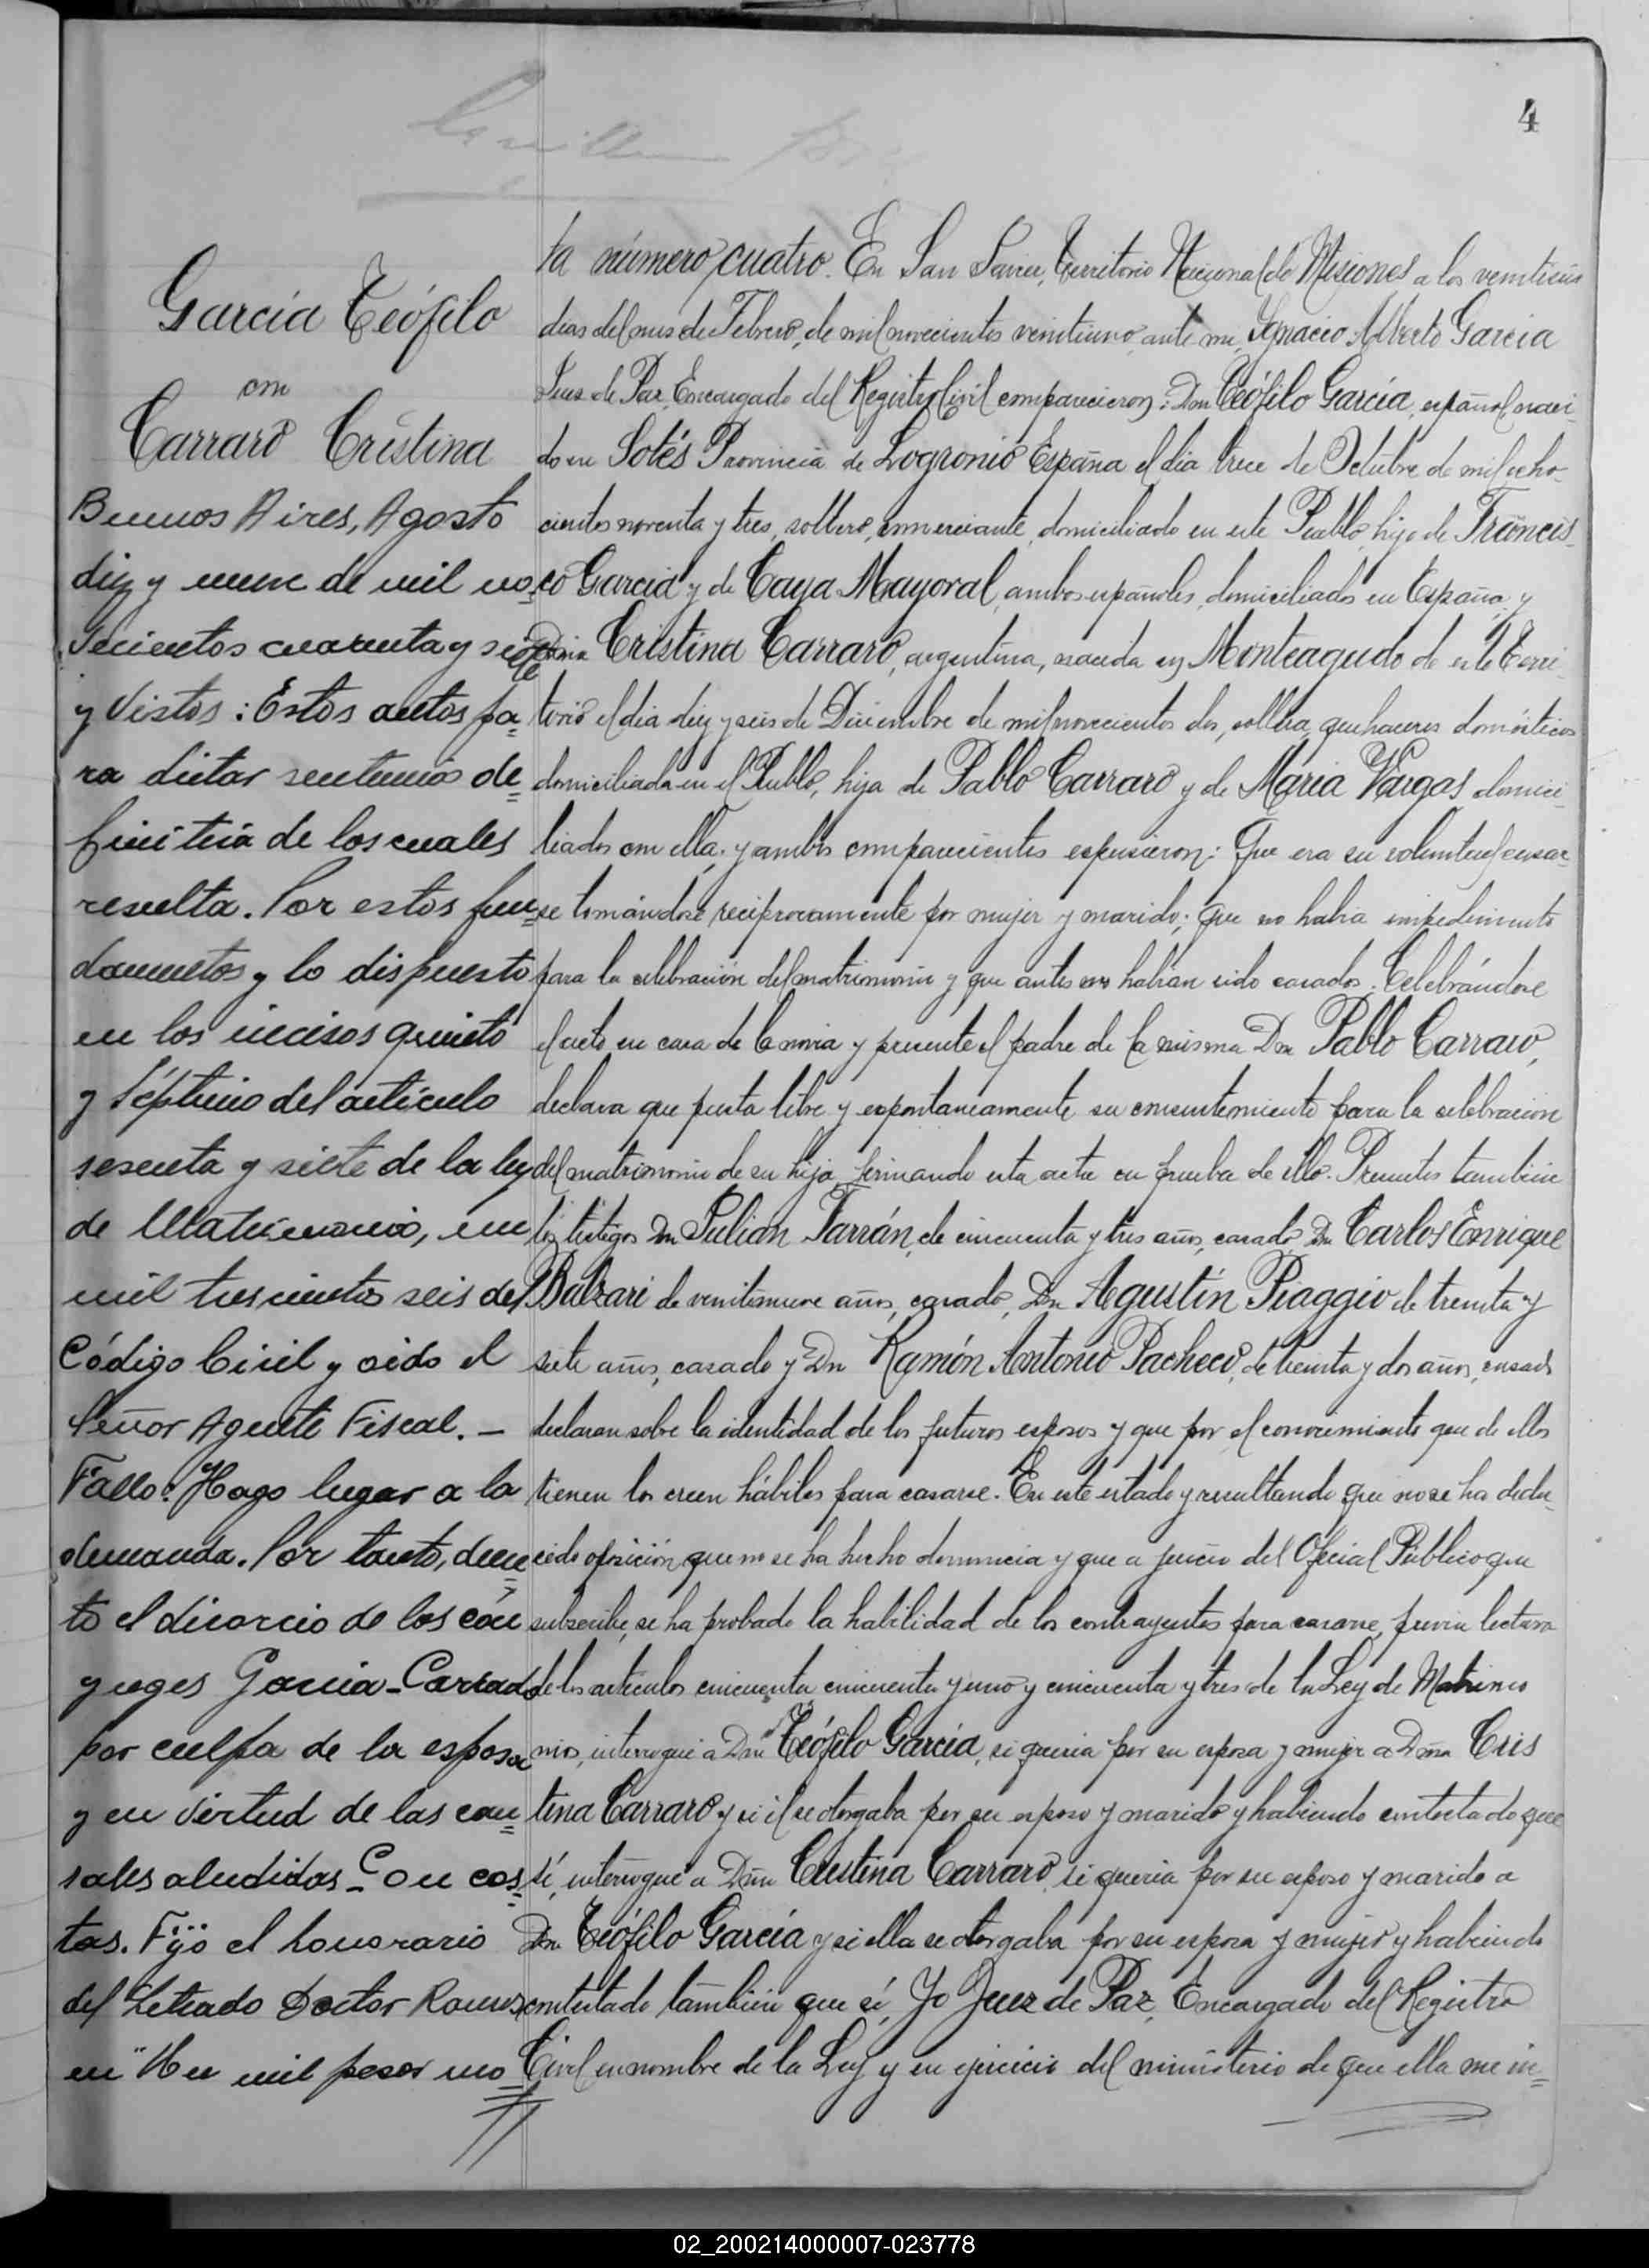 4
García Teófilo
con
Carraro Cristina
Buenos Aires, Agosto
diez y nueve de mil no-
vecientos cuarenta y siete
y Vistos: Estos autos pa-
ra dictar sentencia de=
finitiva de los cuales
resulta. Por estos fun-
damentos y lo dispuesto
en los incisos quinto
y séptimo del artículo
sesenta y siete de la ley
de Matrimonio,
mil trescientos seis del
Código Civil y oido el
Señor Agente Fiscal. —
Fallo: Hago lugar a la
demanda. Por tanto, decre=
to el divorcio de los cón
yuges Garcia-Carraro
por culpa de la esposa
y en virtud de las cau=
sales aludidas_Con cos-
tas. Fijo el honorario
del Letrado Doctor
en "Un mil pesos mo=
ta número cuatro. En San Javier, Territorio Nacional de Misiones a los
dias del mes de Febrero, de mil novecientos veintiuno, ante mi, Ygnacio Alberto Garcia
Juez de Paz, Encargado del Registro Civil comparecieron: Don Teófilo García, español, naci-
do en Sotés Provincia de Logronio España el dia trece de Octubre de mil ocho-
cientos noventa y tres, soltero, comerciante, domiciliado en este Pueblo, hijo de Francis-
co Garcia y de Caya Mayoral, ambos españoles, domiciliados en España; y
Doña Cristina Carraro, argentina, nacida en Monteagudo de este Terri-
torio el dia diez y seis de Diciembre de mil novecientos dos, soltera, quehaceres domésticos
domiciliada en el Pueblo, hija de Pablo Carraro y de Maria Vargas domici-
liados con ella; y ambos comparecientes espusieron: Que era su voluntad casar-
se tomándose reciprocamente por mujer y marido; que no habia impedimento
para la celebración del matrimonio y que antes no habian sido casados. Celebrándose
el acto en casa de la novia y presente el padre de la misma Don Pablo Carraro,
declara que presta libre y espontaneamente su consentimiento para la celebracion
del matrimonio de su hija, firmando esta acta en prueba de ello. Presentes tambien
los testigos Don Julian Farrán, de cincuenta y tres años, casado, Dn Carlos Enrique
Balzari de veintinueve años, casado, Dn Agustín Piaggio de treinta y
siete años, casado y Dn Ramón Antonio Pacheco, de treinta y dos años, casado
declaran sobre la identidad de los futuros esposos y que por el conocimiento que de ellos
tienen los creen hábiles para casarse. En este estado y resultando que no se ha dedu-
cido oposición, que no se ha hecho denuncia y que a juicio del Oficial Público que
subscribe, se ha probado la habilidad de los contrayentes para casarse, previa lectura
de los articulos cincuenta, cincuenta y uno y cincuenta y tres de la Ley de Matrimo
nio, interrogué a Don Teófilo García, si queria por su esposa y mujer a Doña Cris
tina Carraro y si él se otorgaba por su esposo y marido y habiendo contestado que
sí, interrogué a Doña Cristina Carraro, si queria por su esposo y marido a
Don Teófilo García y si ella se otorgaba por su esposa y mujer y habiendo
contestado tambien que sí, Yo Juez de Paz, Encargado del Registro
Civil en nombre de la Ley y en ejercicio del ministerio de que ella me in=
02_200214000007-023778